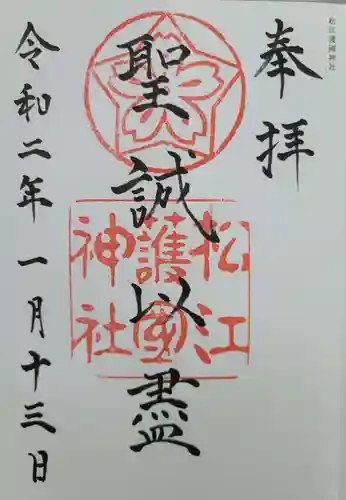 松江護國神社
奉拝
聖誠以盡
松江
護國
神社
令和二年一月十三日